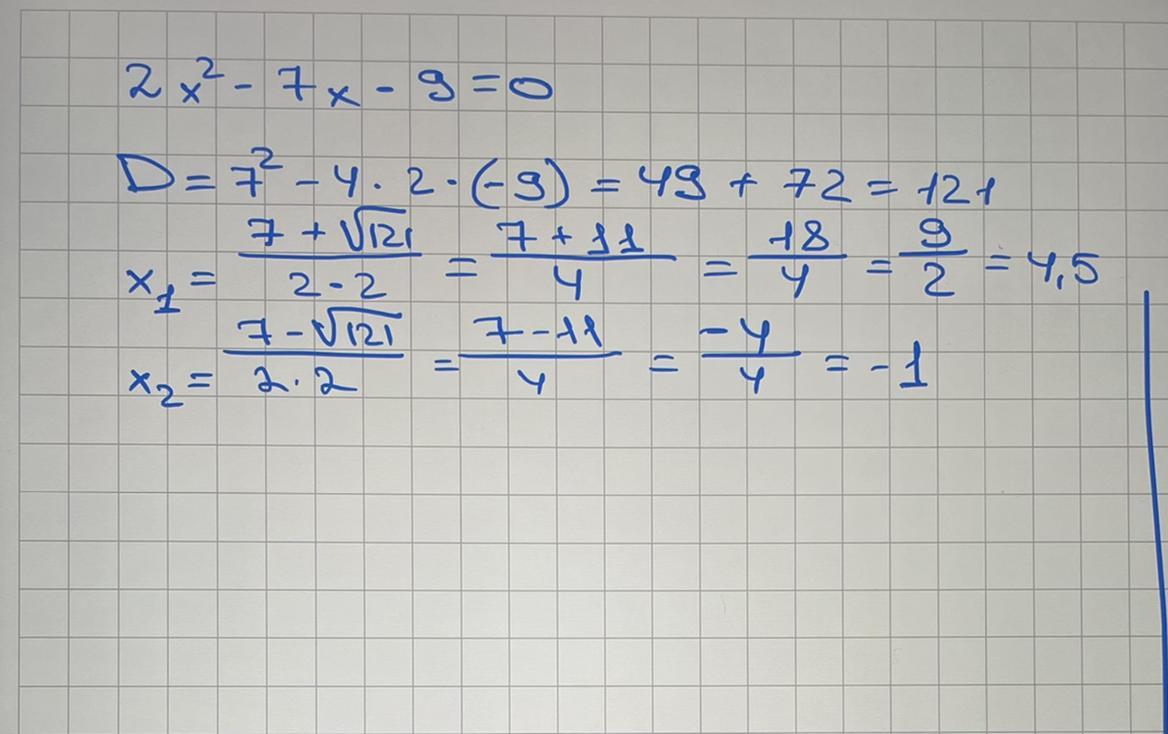 2x² - 7x - 9 = 0
D = 7² - 4 · 2 · (-9) = 49 + 72 = 121
x₁ = (7 + √121)/(2 · 2) = (7 + 11)/4 = 18/4 = 9/2 = 4,5
x₂ = (7 - √121)/(2 · 2) = (7 - 11)/4 = -4/4 = -1